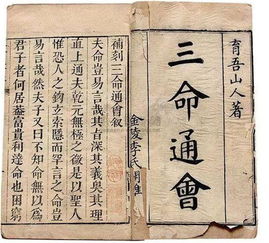 育吾山人著
三命通會
金陵李氏
補刻三命通會敘
夫命豈易言哉其旨深其義奥其理
直上通夫乾元無極之後是以聖人
惟恐人之鉤玄索隱而罕言之命豈
易言哉然夫子又曰不知命無以為
君子者何居蓋富貴利達命也困窮